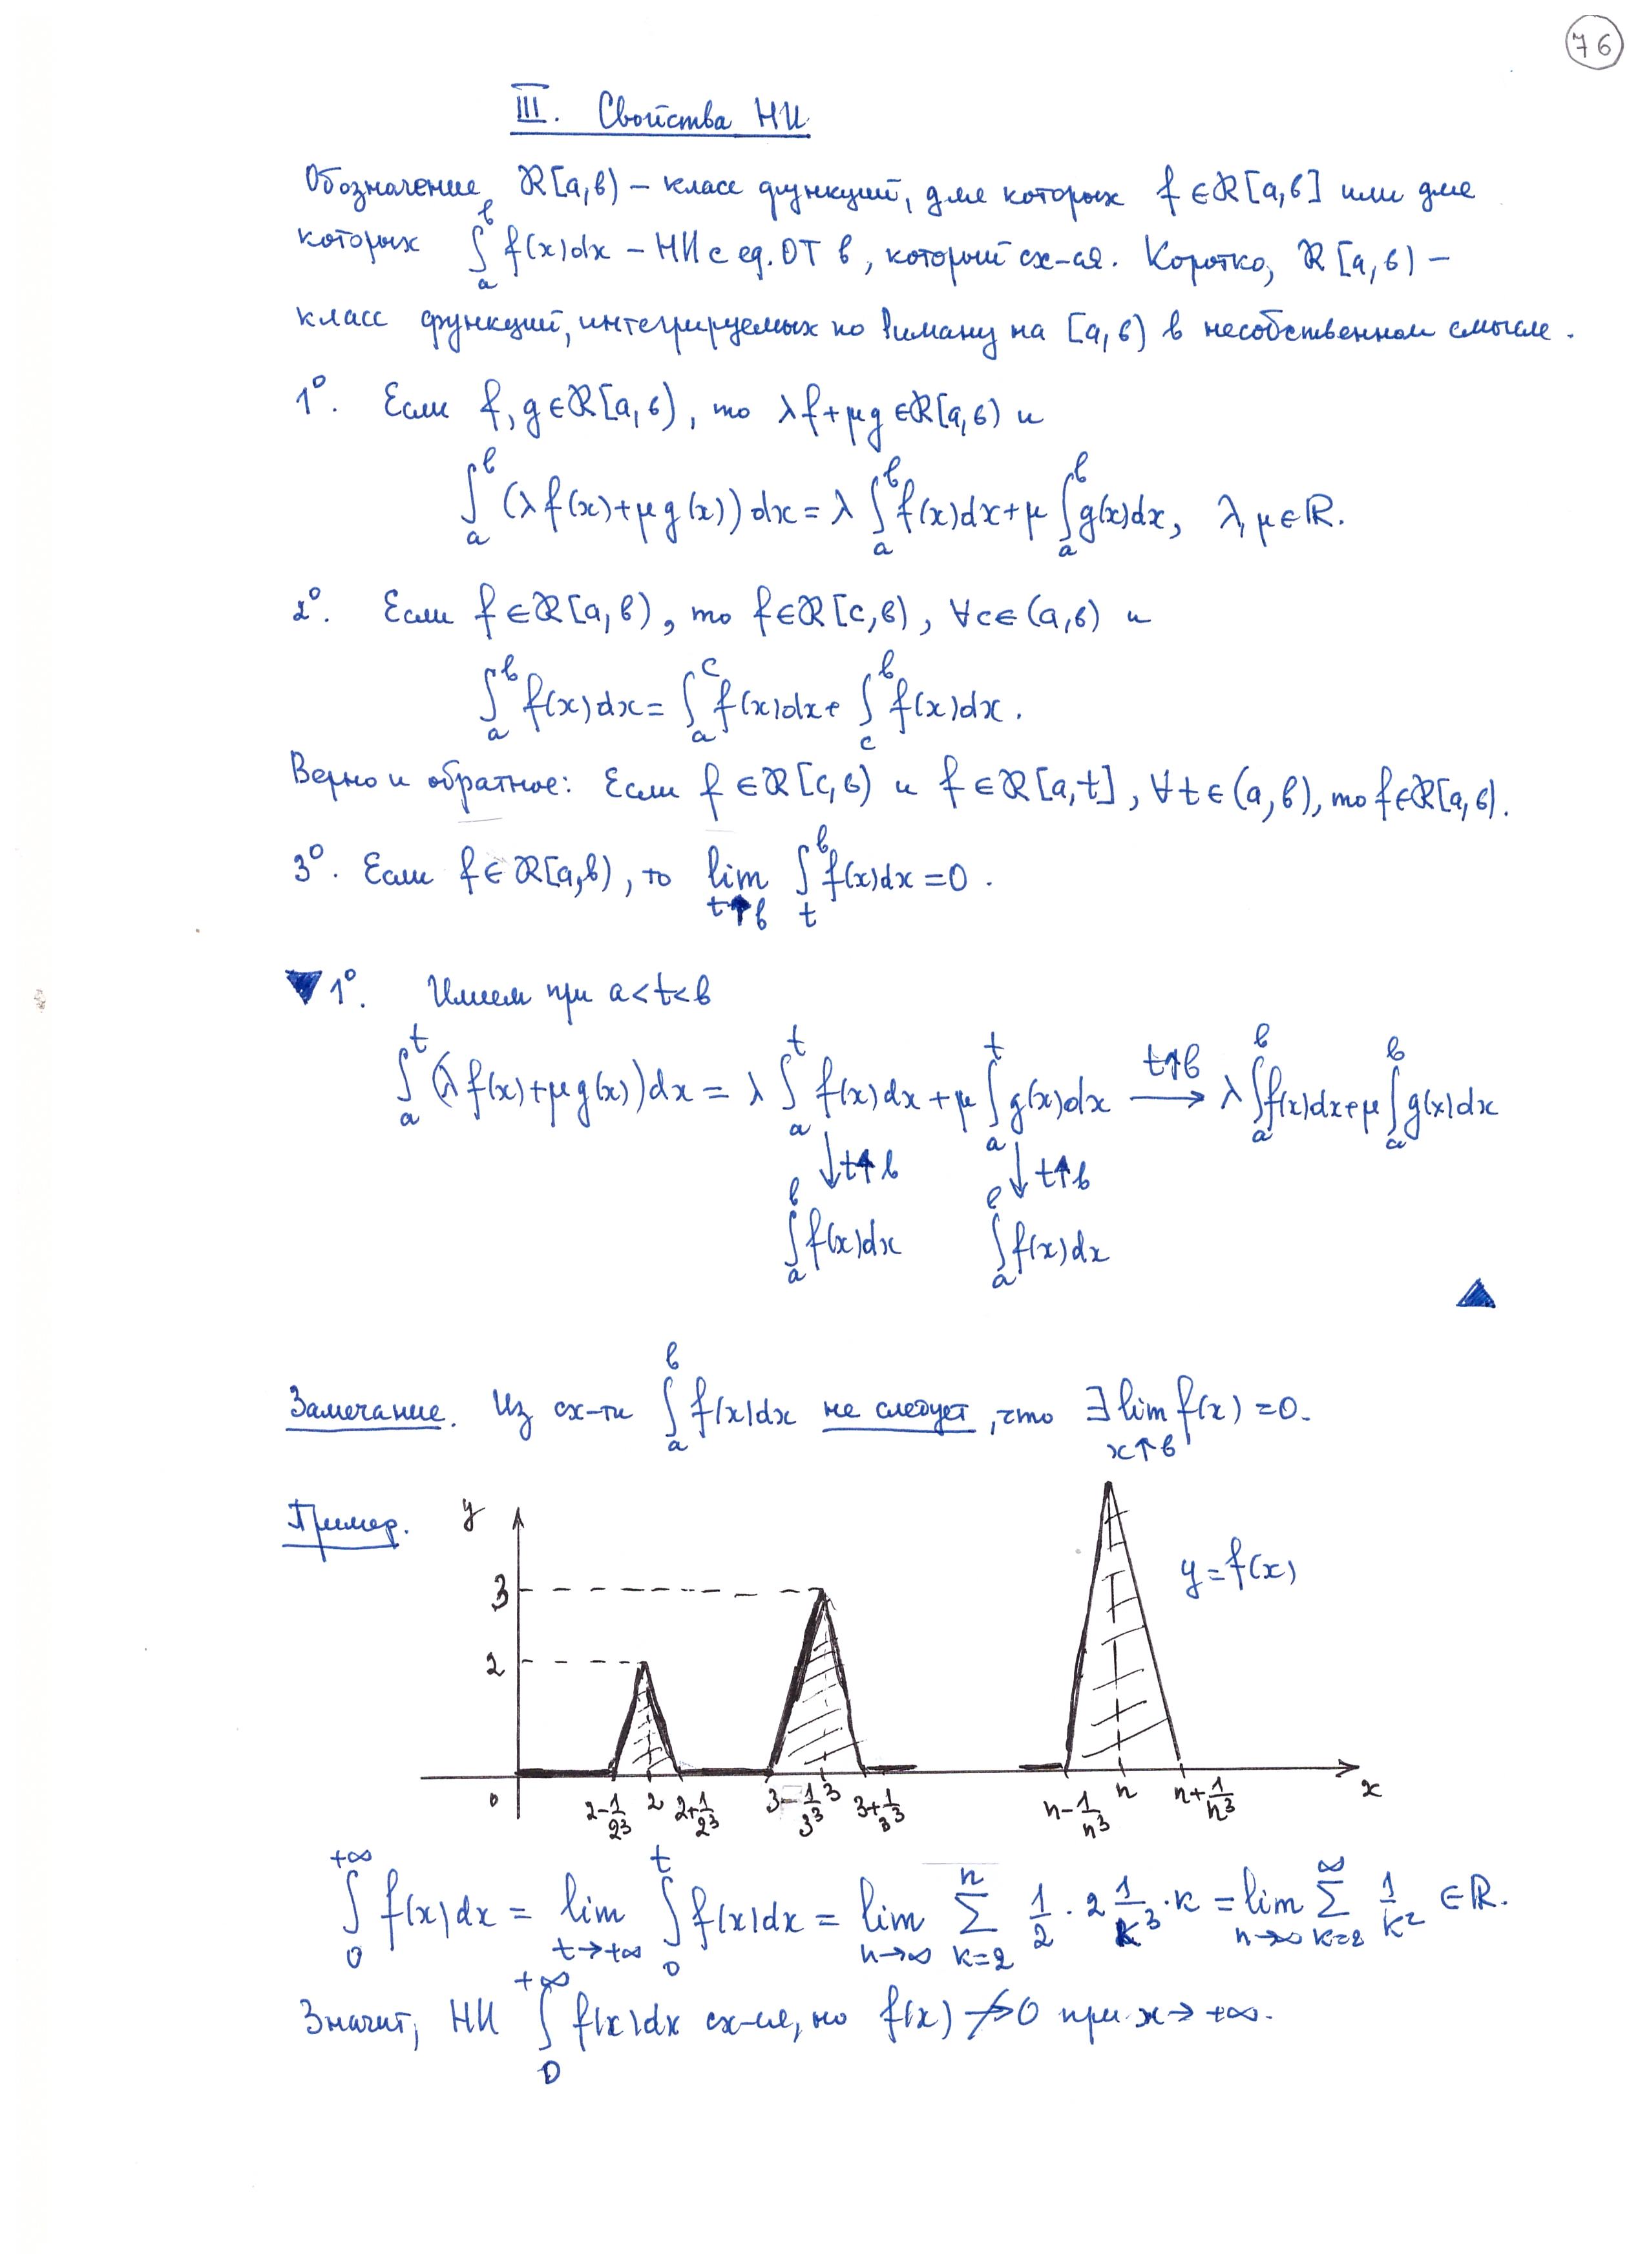 76
III. Свойства НИ
Обозначение ℛ[a,b) – класс функций, для которых f∈ℛ[a,b] или для
которых ∫_a^b f(x)dx – НИ с ед. ОТ b, который сх-ся. Коротко, ℛ[a,b) –
класс функций, интегрируемых по Риману на [a,b) в несобственном смысле.
1°. Если f,g∈ℛ[a,b), то λf+μg∈ℛ[a,b) и
∫_a^b (λf(x)+μg(x))dx = λ∫_a^b f(x)dx+μ∫_a^b g(x)dx, λ,μ∈ℝ.
2°. Если f∈ℛ[a,b), то f∈ℛ[c,b), ∀c∈(a,b) и
∫_a^b f(x)dx = ∫_a^c f(x)dx+∫_c^b f(x)dx.
Верно и обратное: Если f∈ℛ[c,b) и f∈ℛ[a,t], ∀t∈(a,b), то f∈ℛ[a,b).
3°. Если f∈ℛ[a,b), то lim_{t↑b} ∫_t^b f(x)dx = 0.
▼1°. Имеем при a<t<b
∫_a^t (λf(x)+μg(x))dx = λ∫_a^t f(x)dx+μ∫_a^t g(x)dx ⟶^{t↑b} λ∫_a^b f(x)dx+μ∫_a^b g(x)dx
↓t↑b ↓t↑b
∫_a^b f(x)dx ∫_a^b f(x)dx
▲
Замечание. Из сх-ти ∫_a^b f(x)dx не следует, что ∃lim_{x↑b} f(x)=0.
Пример. y
y=f(x)
3
2
0 2-1/2³ 2 2+1/2³ 3-1/3³ 3 3+1/3³ n-1/n³ n n+1/n³ x
∫_0^{+∞} f(x)dx = lim_{t→+∞} ∫_0^t f(x)dx = lim_{n→∞} ∑_{k=2}^n 1/2·2 1/k³·k = lim_{n→∞} ∑_{k=2}^∞ 1/k² ∈ℝ.
Значит, НИ ∫_0^{+∞} f(x)dx сх-ся, но f(x)↛0 при x→+∞.